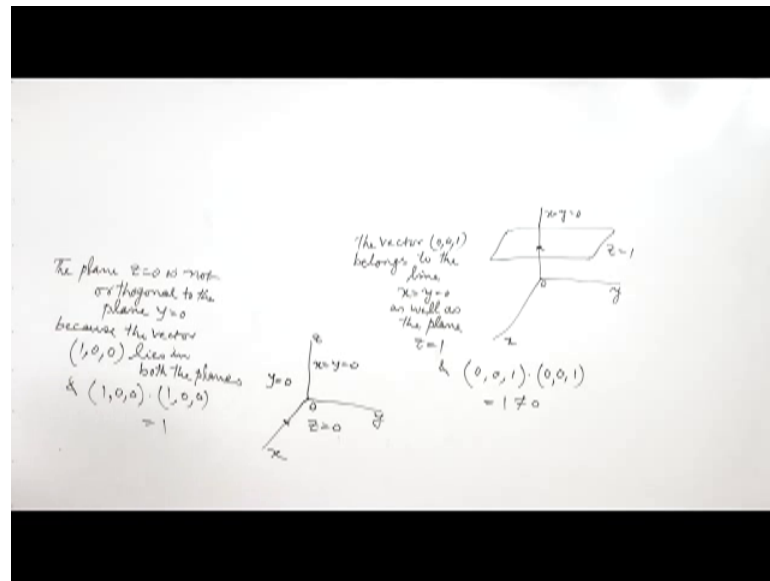 The plane z=0 is not
orthogonal to the
plane y=0
because the vector
(1,0,0) lies in
both the planes
& (1,0,0)·(1,0,0)
= 1
z
x=y=0
y=0
0
y
z=0
x
The vector (0,0,1)
belongs to the
line
x=y=0
as well as
the plane
z=1
& (0,0,1)·(0,0,1)
= 1≠0
x=y=0
z=1
0
y
x